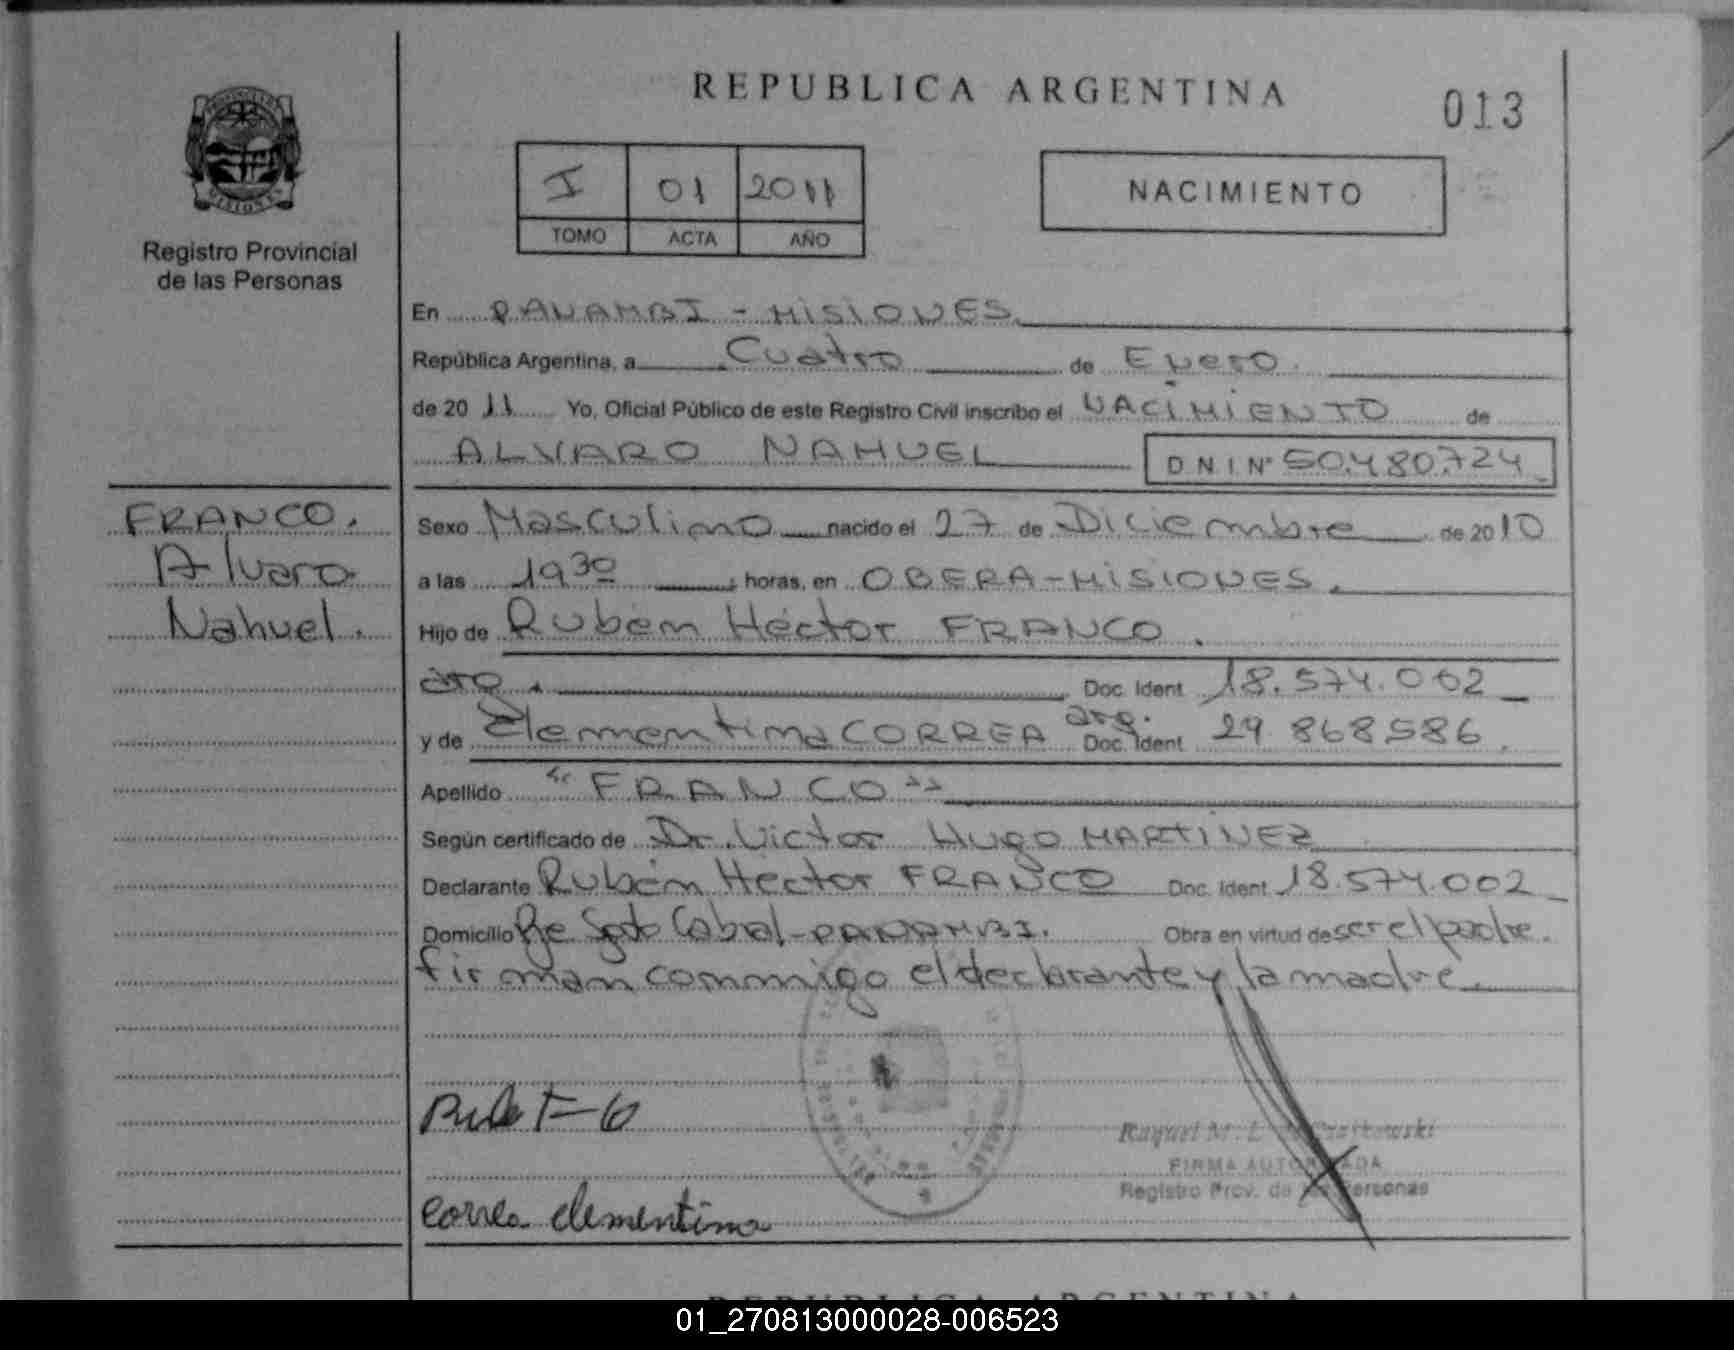 REPUBLICA ARGENTINA
013
I 01 2011
TOMO ACTA AÑO
NACIMIENTO
Registro Provincial
de las Personas
En PANAMBI - MISIONES
República Argentina, a Cuatro de Enero.
de 2011 Yo, Oficial Público de este Registro Civil inscribo el NACIMIENTO de
ALVARO NAHUEL DNI Nº 50.480.724
FRANCO.
Alvaro
Nahuel.
Sexo Masculino nacido el 27 de Diciembre de 2010
a las 19 30 horas, en OBERA - MISIONES.
Hijo de Rubén Héctor FRANCO.
arg. Doc. Ident 18.574.002
y de Clementina CORREA arg. Doc. Ident 29.868.586.
Apellido "FRANCO"
Según certificado de Dr. Victor HUGO MARTINEZ
Declarante Rubén Héctor FRANCO Doc. Ident 18.574.002
Domicilio Pje Sgto Cabral - PANAMBI. Obra en virtud de ser el padre.
firman conmigo el declarante y la madre.
Raquel M.
FIRMA AUTORIZADA
Registro Prov. de las Personas
Correa clementina
REPUBLICA ARGENTINA
01_270813000028-006523